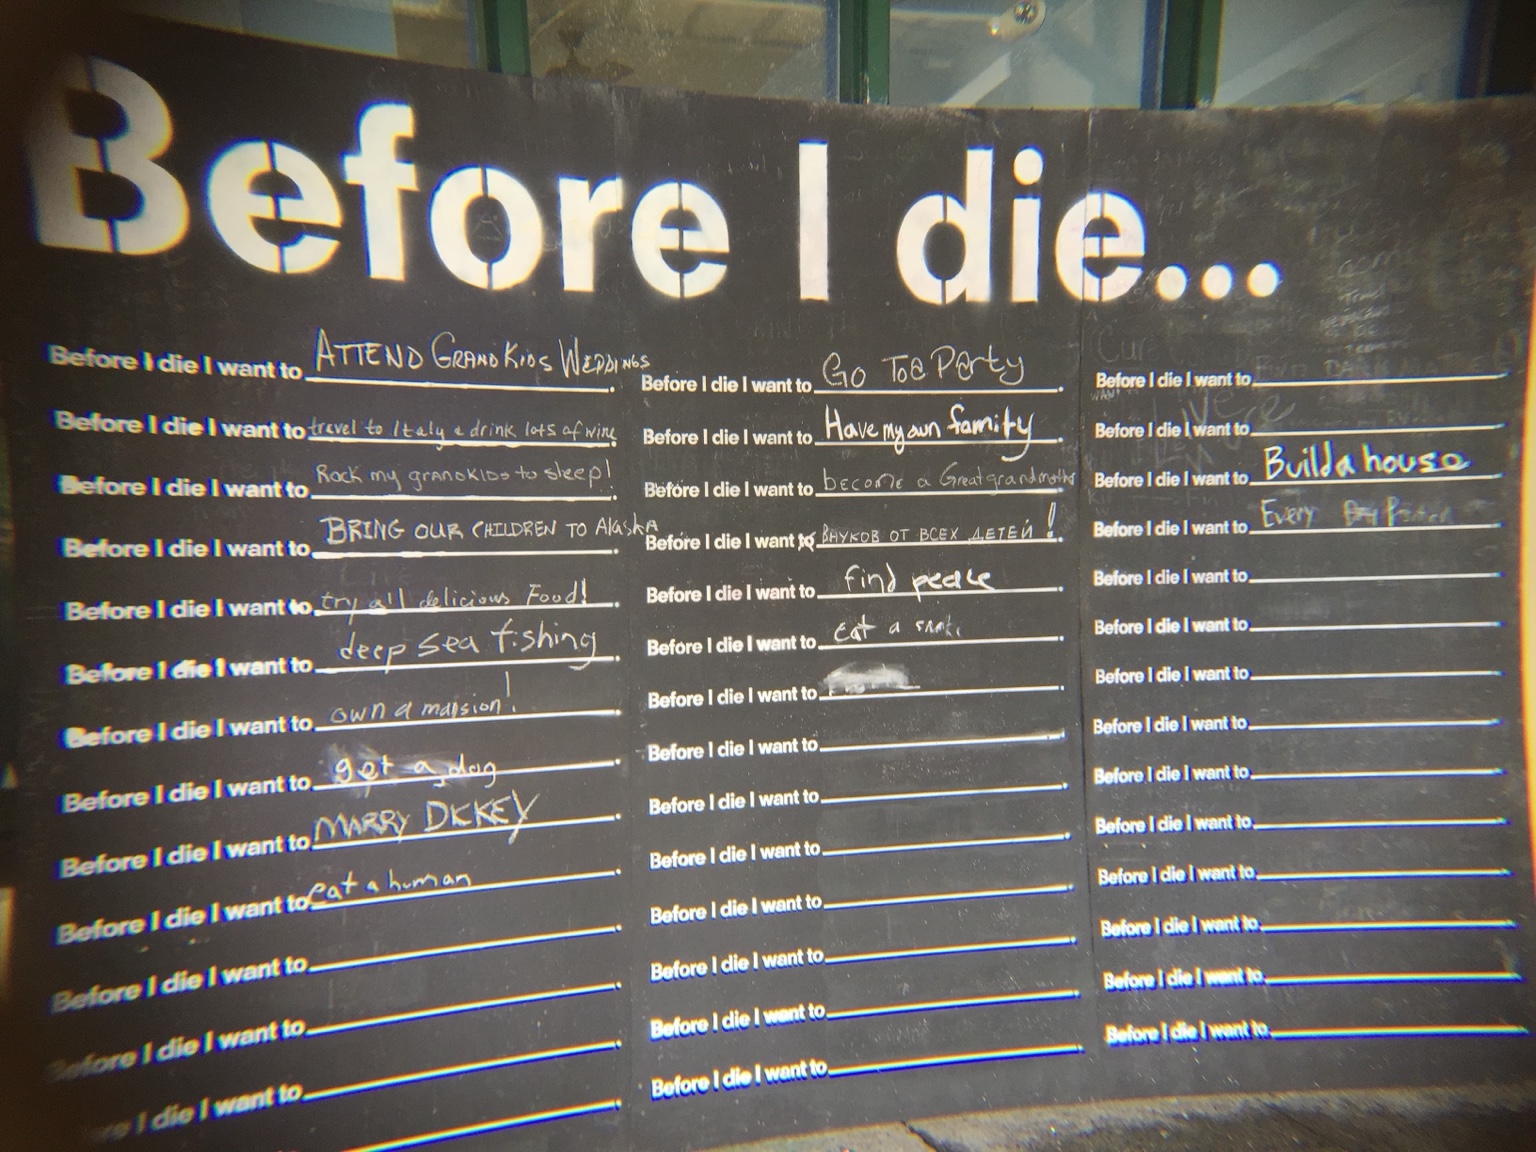 Before I die...
Before I die I want to ATTEND GRANDKIDS WEDDINGS.
Before I die I want to travel to Italy & drink lots of wine.
Before I die I want to Rock my grandkids to sleep!.
Before I die I want to BRING OUR CHILDREN TO AlaskA.
Before I die I want to try all delicious Food!.
Before I die I want to deep sea fishing.
Before I die I want to own a mansion!.
Before I die I want to get a dog.
Before I die I want to MARRY DICKEY.
Before I die I want to eat a human.
Before I die I want to.
Before I die I want to.
Before I die I want to.
Before I die I want to Go To a Party.
Before I die I want to Have my own family.
Before I die I want to become a Great grandmother
Before I die I want to ВНУКОВ ОТ ВСЕХ ДЕТЕЙ!.
Before I die I want to find peace.
Before I die I want to eat a.
Before I die I want to.
Before I die I want to.
Before I die I want to.
Before I die I want to.
Before I die I want to.
Before I die I want to.
Before I die I want to.
Before I die I want to.
Before I die I want to.
Before I die I want to.
Before I die I want to Build a house.
Before I die I want to Every
Before I die I want to.
Before I die I want to.
Before I die I want to.
Before I die I want to.
Before I die I want to.
Before I die I want to.
Before I die I want to.
Before I die I want to.
Before I die I want to.
Before I die I want to.